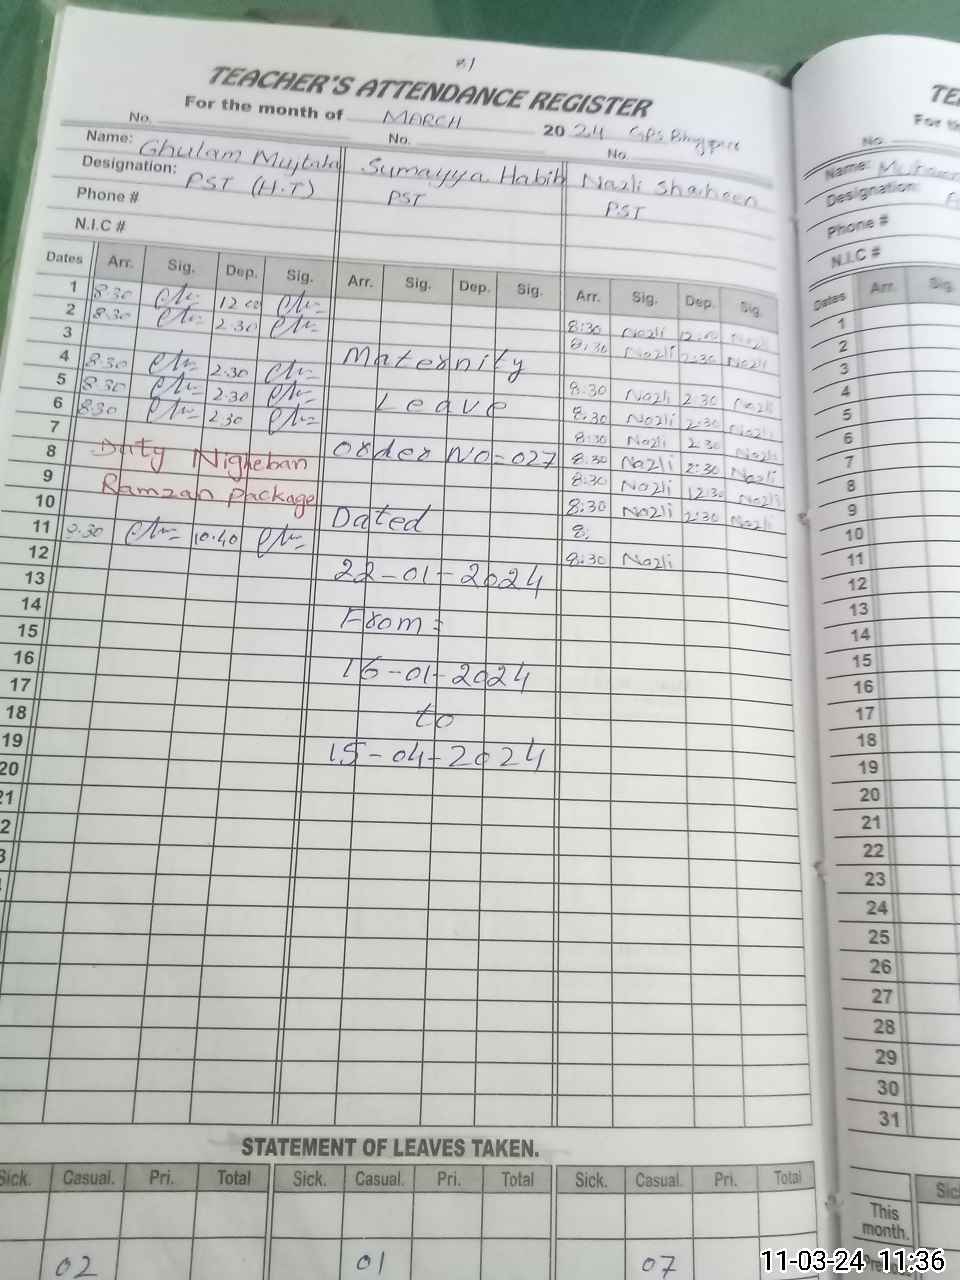 TEACHER'S ATTENDANCE REGISTER
For the month of MARCH 2024
No. No. No.
Name: Ghulam Mujtaba Sumayya Habib Nazli Shaheen
Designation: PST (H.T) PST PST
Phone #
N.I.C #
Dates Arr. Sig. Dep. Sig. Arr. Sig. Dep. Sig. Arr. Sig. Dep. Sig.
1 8.30 12.00 8:30 Nazli Nazli
2 8.30 2.30 8:30 Nazli 2:30 Nazli
3
4 8.30 2.30 Maternity 8:30 Nazli 2:30 Nazli
5 8.30 2.30 8:30 Nazli 2:30 Nazli
6 8.30 2.30 Leave 8:30 Nazli 2:30 Nazli
7 8:30 Nazli 2:30 Nazli
8 Duty Nigheban order NO=027 8:30 Nazli 12:30 Nazli
9 Ramzan package 8:30 Nazli 2:30 Nazli
10 Dated 8:
11 10.40 8:30 Nazli
12 22-01-2024
13
14 From=
15
16 16-01-2024
17
18 to
19 15-04-2024
20
21
STATEMENT OF LEAVES TAKEN.
Sick. Casual. Pri. Total Sick. Casual. Pri. Total Sick. Casual. Pri. Total
02 01 07
No.
Name:
Designation:
Phone #
N.I.C #
Dates Arr. Sig.
1
2
3
4
5
6
7
8
9
10
11
12
13
14
15
16
17
18
19
20
21
22
23
24
25
26
27
28
29
30
31
This
month.
11-03-24 11:36